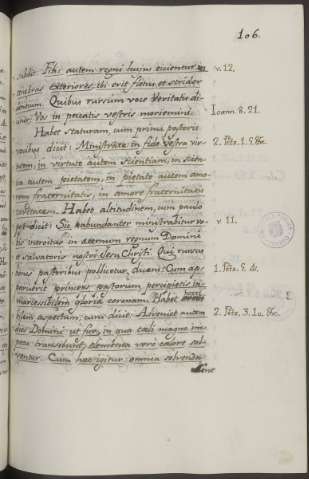 106.
Filii autem regni hujus eicientur in v. 12.
tenebras exteriores, ibi erit fletus et stridor
dentium. Quibus rursum voce Veritatis di-
Vos in peccatis vestris moriemini. Ioann. 8. 21.
Habet staturam, cum primus pastorū
vocibus dicit: Ministrate in fide vestra vir- 2. Petr. 1. 5. &c.
tutem, in virtute autem scientiam, in scien-
autem pietatem, in pietate autem amo-
rem fraternitatis, in amore fraternitatis
charitatem. Habet altitudinem, cum paulo
post dicit: Sic abundanter ministrabitur vo- v. 11.
bis introitus in æternum regnum Domini
et salvatoris nostri Jesu Christi. Qui rursus
pastoribus pollicetur, dicens: Cum ap- 1. Petr. 5. 4.
paruerit princeps pastorum, percipietis im-
marcescibilem gloriæ coronam. Habet
aspectum, cum dicit: Adveniet autem 2. Petr. 3. 10. &c.
dies Domini ut fur, in qua cæli magno im-
petu transibunt, elementa vero calore sol-
ventur. Cum hæc igitur omnia solvenda
sint